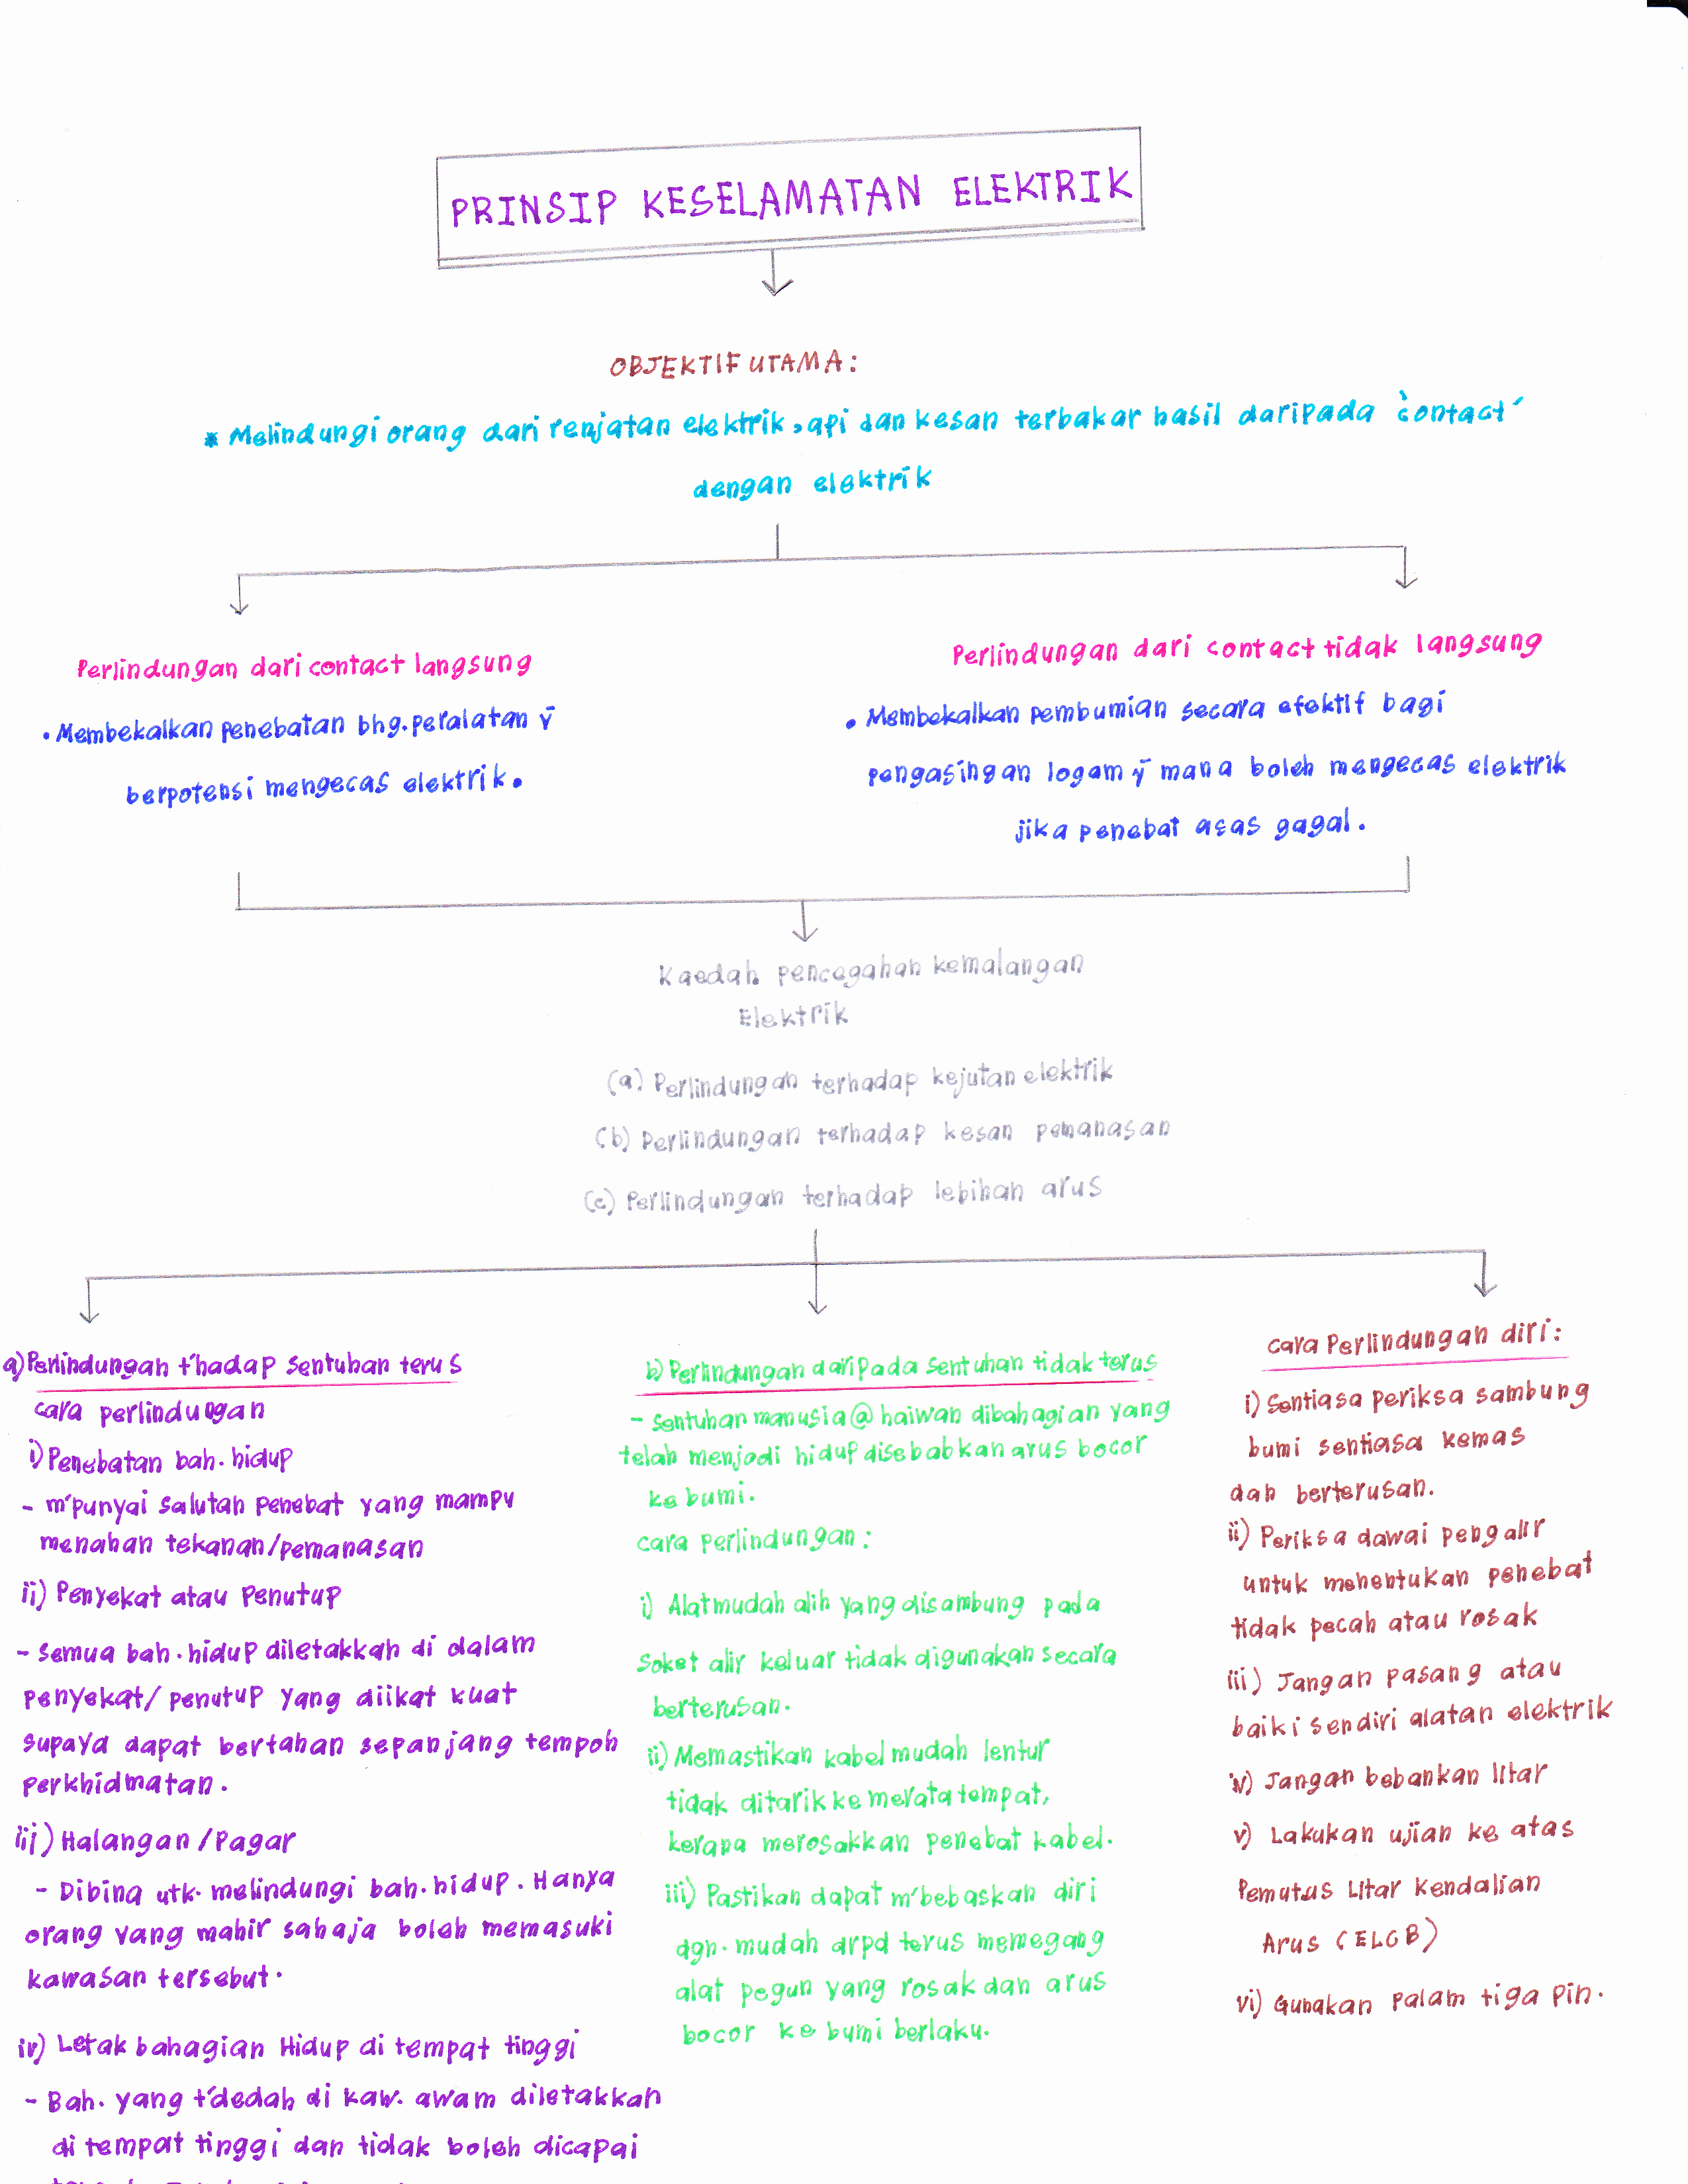 PRINSIP KESELAMATAN ELEKTRIK
OBJEKTIF UTAMA:
* Melindungi orang dari renjatan elektrik, api dan kesan terbakar hasil daripada 'contact'
dengan elektrik
Perlindungan dari contact langsung
• Membekalkan penebatan bhg. peralatan ȳ
berpotensi mengecas elektrik.
Perlindungan dari contact tidak langsung
• Membekalkan pembumian secara efektif bagi
pengasingan logam ȳ mana boleh mengecas elektrik
jika penebat asas gagal.
Kaedah pencegahan kemalangan
Elektrik
(a) Perlindungan terhadap kejutan elektrik
(b) Perlindungan terhadap kesan pemanasan
(c) Perlindungan terhadap lebihan arus
a) Perlindungan t'hadap sentuhan terus
cara perlindungan
i) Penebatan bah. hidup
- m'punyai salutan penebat yang mampu
menahan tekanan/pemanasan
ii) Penyekat atau Penutup
- Semua bah. hidup diletakkan di dalam
penyekat/ penutup yang diikat kuat
supaya dapat bertahan sepanjang tempoh
perkhidmatan.
iii) Halangan /Pagar
- Dibina utk. melindungi bah. hidup. Hanya
orang yang mahir sahaja boleh memasuki
kawasan tersebut.
iv) Letak bahagian Hidup di tempat tinggi
- Bah. yang t'dedah di kaw. awam diletakkan
di tempat tinggi dan tidak boleh dicapai
b) Perlindungan daripada sentuhan tidak terus
- Sentuhan manusia @ haiwan dibahagian yang
telah menjadi hidup disebabkan arus bocor
ke bumi.
cara perlindungan:
i) Alat mudah alih yang disambung pada
Soket alir keluar tidak digunakan secara
berterusan.
ii) Memastikan kabel mudah lentur
tidak ditarik ke merata tempat,
kerana merosakkan penebat kabel.
iii) Pastikan dapat m'bebaskan diri
dgn. mudah drpd terus memegang
alat pegun yang rosak dan arus
bocor ke bumi berlaku.
cara Perlindungan diri:
i) Sentiasa periksa sambung
bumi sentiasa kemas
dan berterusan.
ii) Periksa dawai pengalir
untuk menentukan penebat
tidak pecah atau rosak
iii) Jangan pasang atau
baiki sendiri alatan elektrik
iv) Jangan bebankan litar
v) Lakukan ujian ke atas
Pemutus Litar Kendalian
Arus (ELCB)
vi) Gunakan Palam tiga pin.